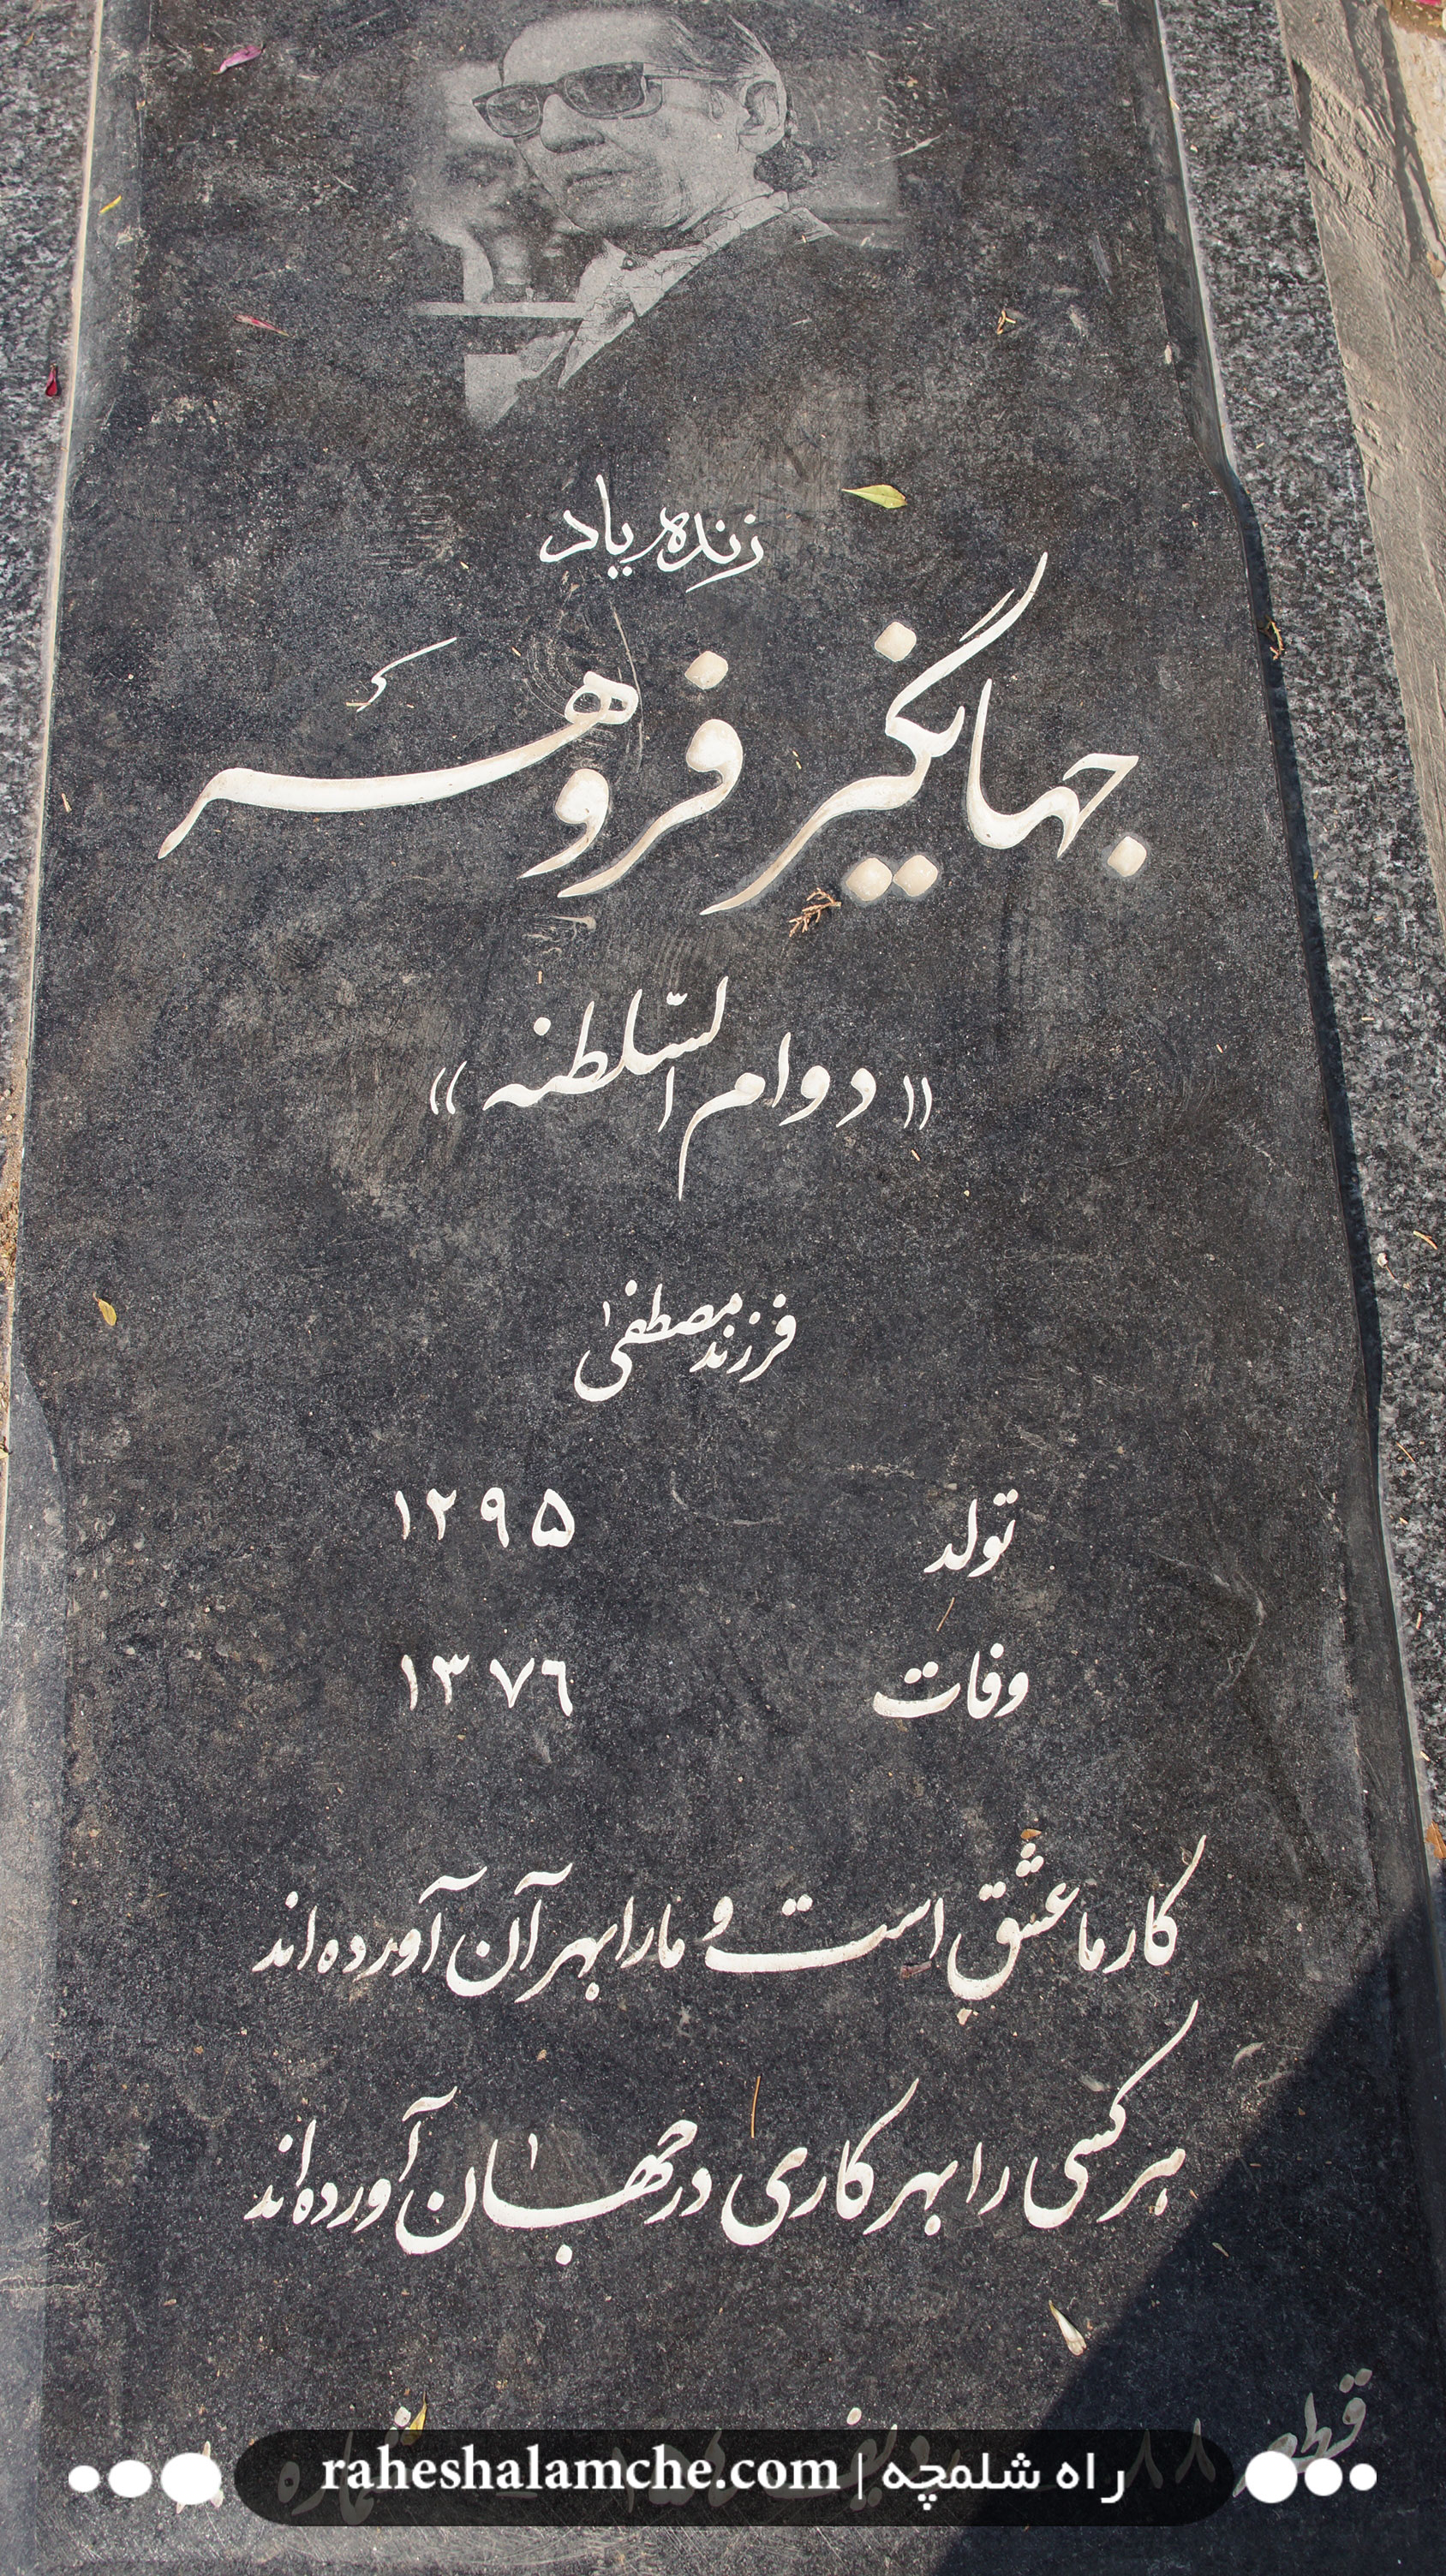 زنده یاد
جهانگیر فروهر
«دوام السّلطنه»
فرزند مصطفیٰ
تولد ۱۲۹۵
وفات ۱۳۷۶
کار ما عشق است و ما را بهر آن آورده‌اند
هر کسی را بهر کاری در جهان آورده‌اند
قطعه ۸۸ ردیف شماره
raheshalamche.com | راه شلمچه